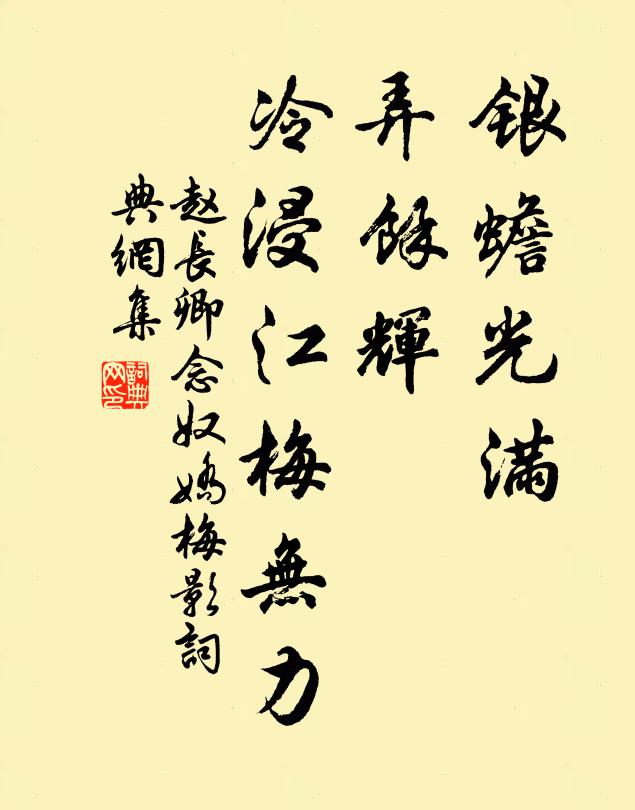 银蟾光满
弄馀輝
冷浸江梅無力
赵長卿念奴嬌梅影詞
典網集
詞典网印